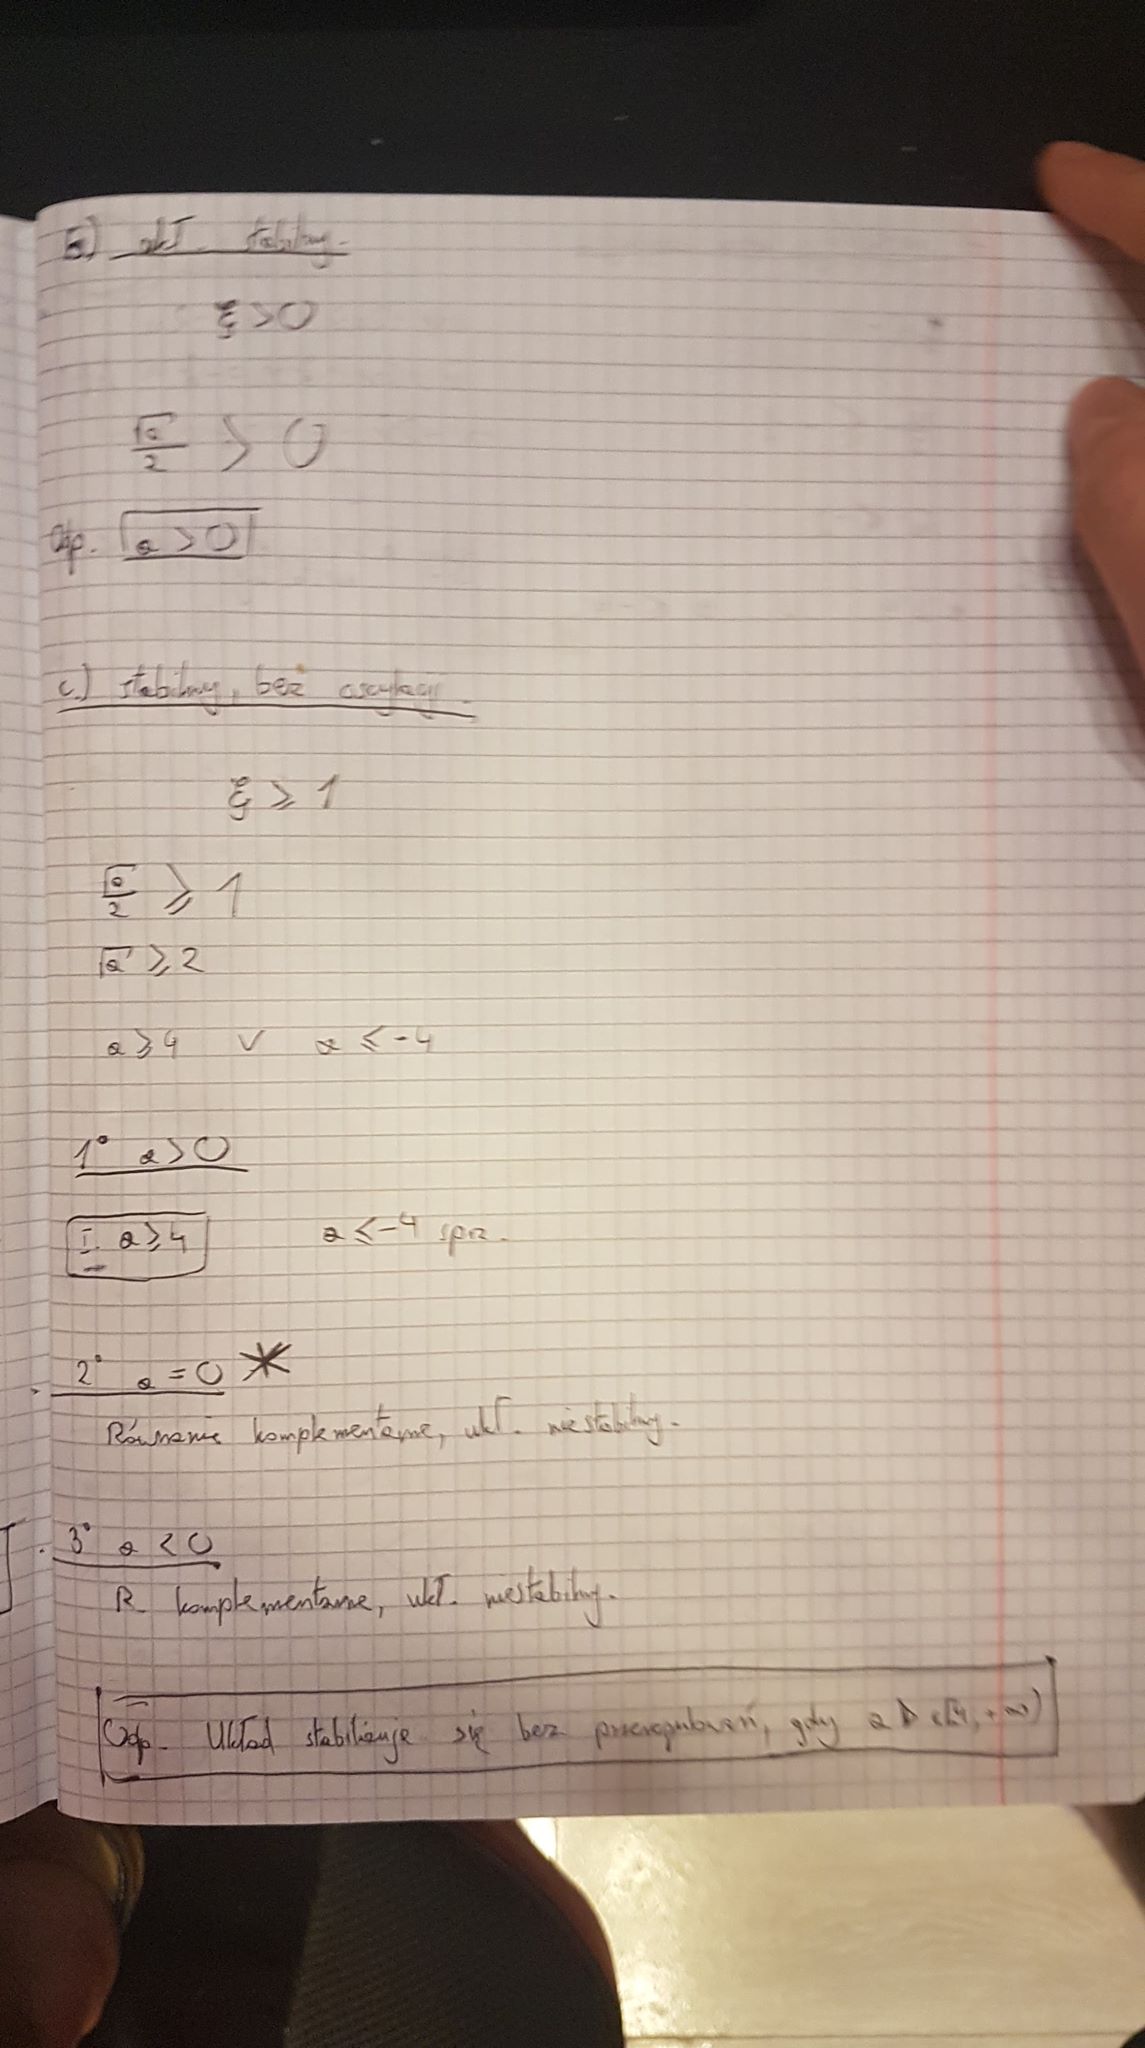 a.) ukł. stabilny.
ξ > 0
√a/2 > 0
Odp. a > 0
c.) stabilny, bez oscylacji.
ξ ⩾ 1
√a/2 ⩾ 1
√a ⩾ 2
a ⩾ 4 v a ⩽ -4
1° a > 0
I. a ⩾ 4 a ⩽ -4 sprz.
2° a = 0 *
Równanie komplementarne, ukł. niestabilny.
3° a < 0
R. komplementarne, ukł. niestabilny.
Odp. Układ stabilizuje się bez przeregulowań, gdy a 4, +∞)